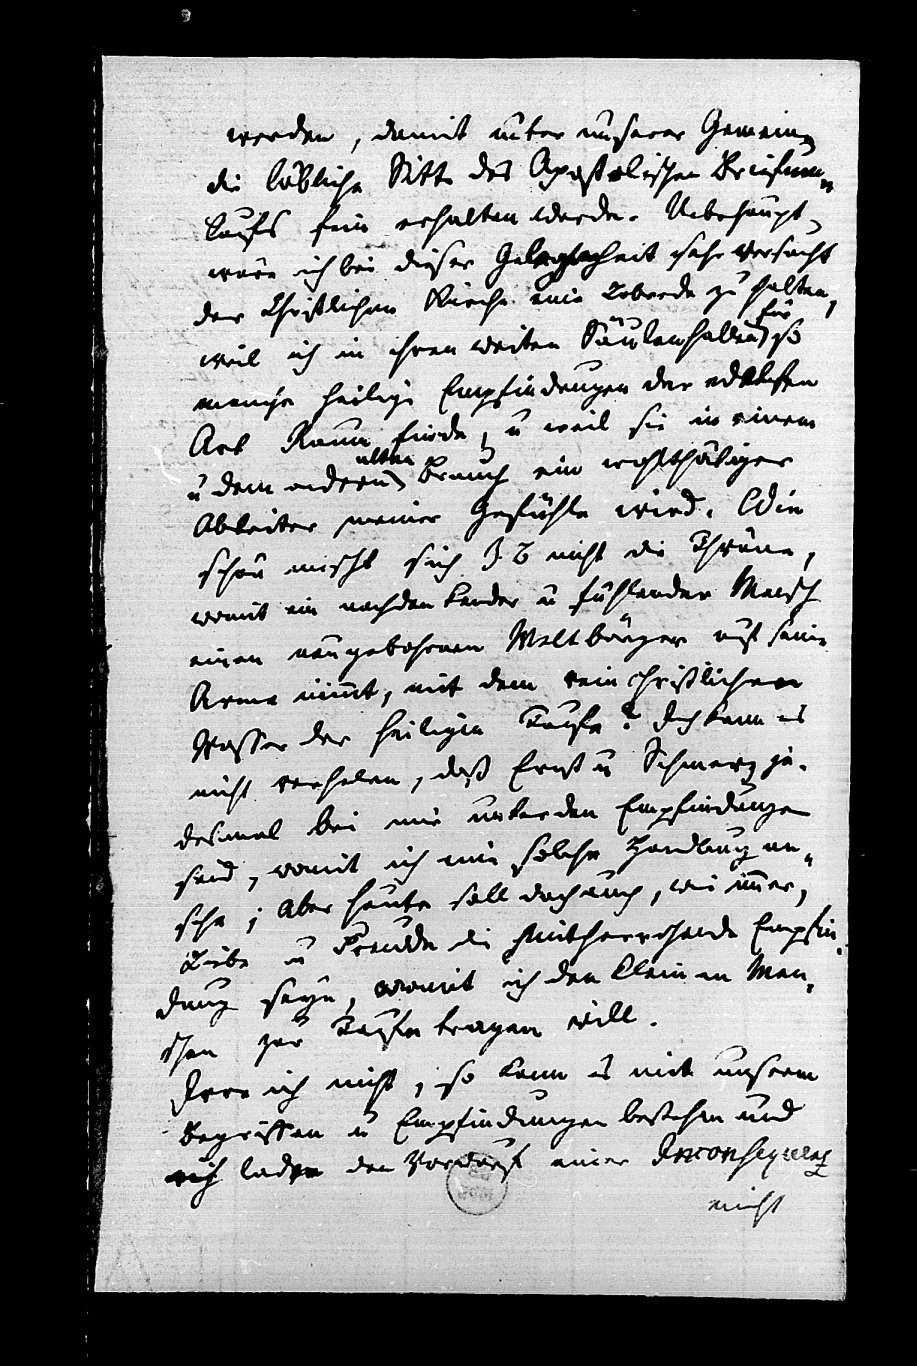 werden, damit unter unserer Gemein¬
die löbliche Sitte des Apostolischen Briefum„
laufs fein erhalten werde. Ueberhaupt
wäre ich bei dieser Gelegenheit sehr versucht
der Christlichen Kirche eine Lobrede zu halten,
weil ich in ihren weiten Säulenhallen für so
manche heilige Empfindungen der edelsten
Art Raum finde, u weil sie in einem
u dem andern alten Brauch ein wohlthätiger
Ableiter meiner Gefühle wird. Wie
schön mischt sich z. B nicht die Thräne,
womit ein nachdenkender u fühlender Mensch
einen neugebohrnen Weltbürger auf seine
Arme nimt, mit dem rein christlichen
Wasser der heiligen Taufe? Ich kann es
nicht verhelen, daß Ernst u Schmerz je-
desmal bei mir unter den Empfindungen
sind, womit ich eine solche Handlung an„
sehe; Aber heute soll doch auch, wie imer,
Liebe u Freude die mitherrschende Empfin-
dung seyn, womit ich den kleinen Men„
schen zur Taufe tragen will.
Irre ich nicht, so kann es mit unsern
Begriffen u Empfindungen bestehen und
ich lade den Vorwurf einer Inconsequenz
nicht